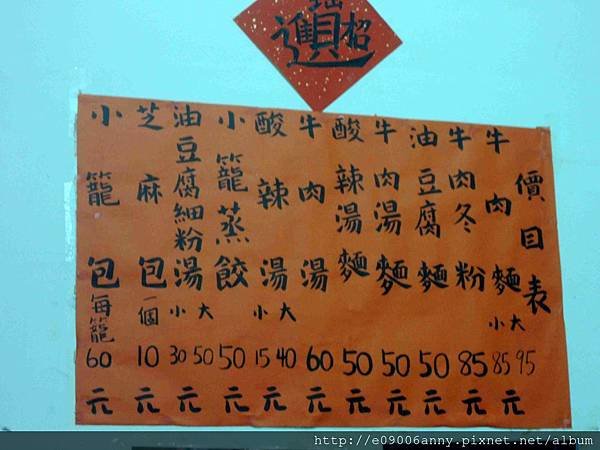 招財進寶
價目表
牛肉麵 小 大 85 95 元
牛肉冬粉 85 元
油豆腐麵 50 元
牛肉湯麵 50 元
酸辣湯麵 50 元
牛肉湯 60 元
酸辣湯 小 大 15 40 元
小籠蒸餃 50 元
油豆腐細粉湯 小 大 30 50 元
芝麻包 一個 10 元
小籠包 每籠 60 元
http://e09006anny.pixnet.net/album